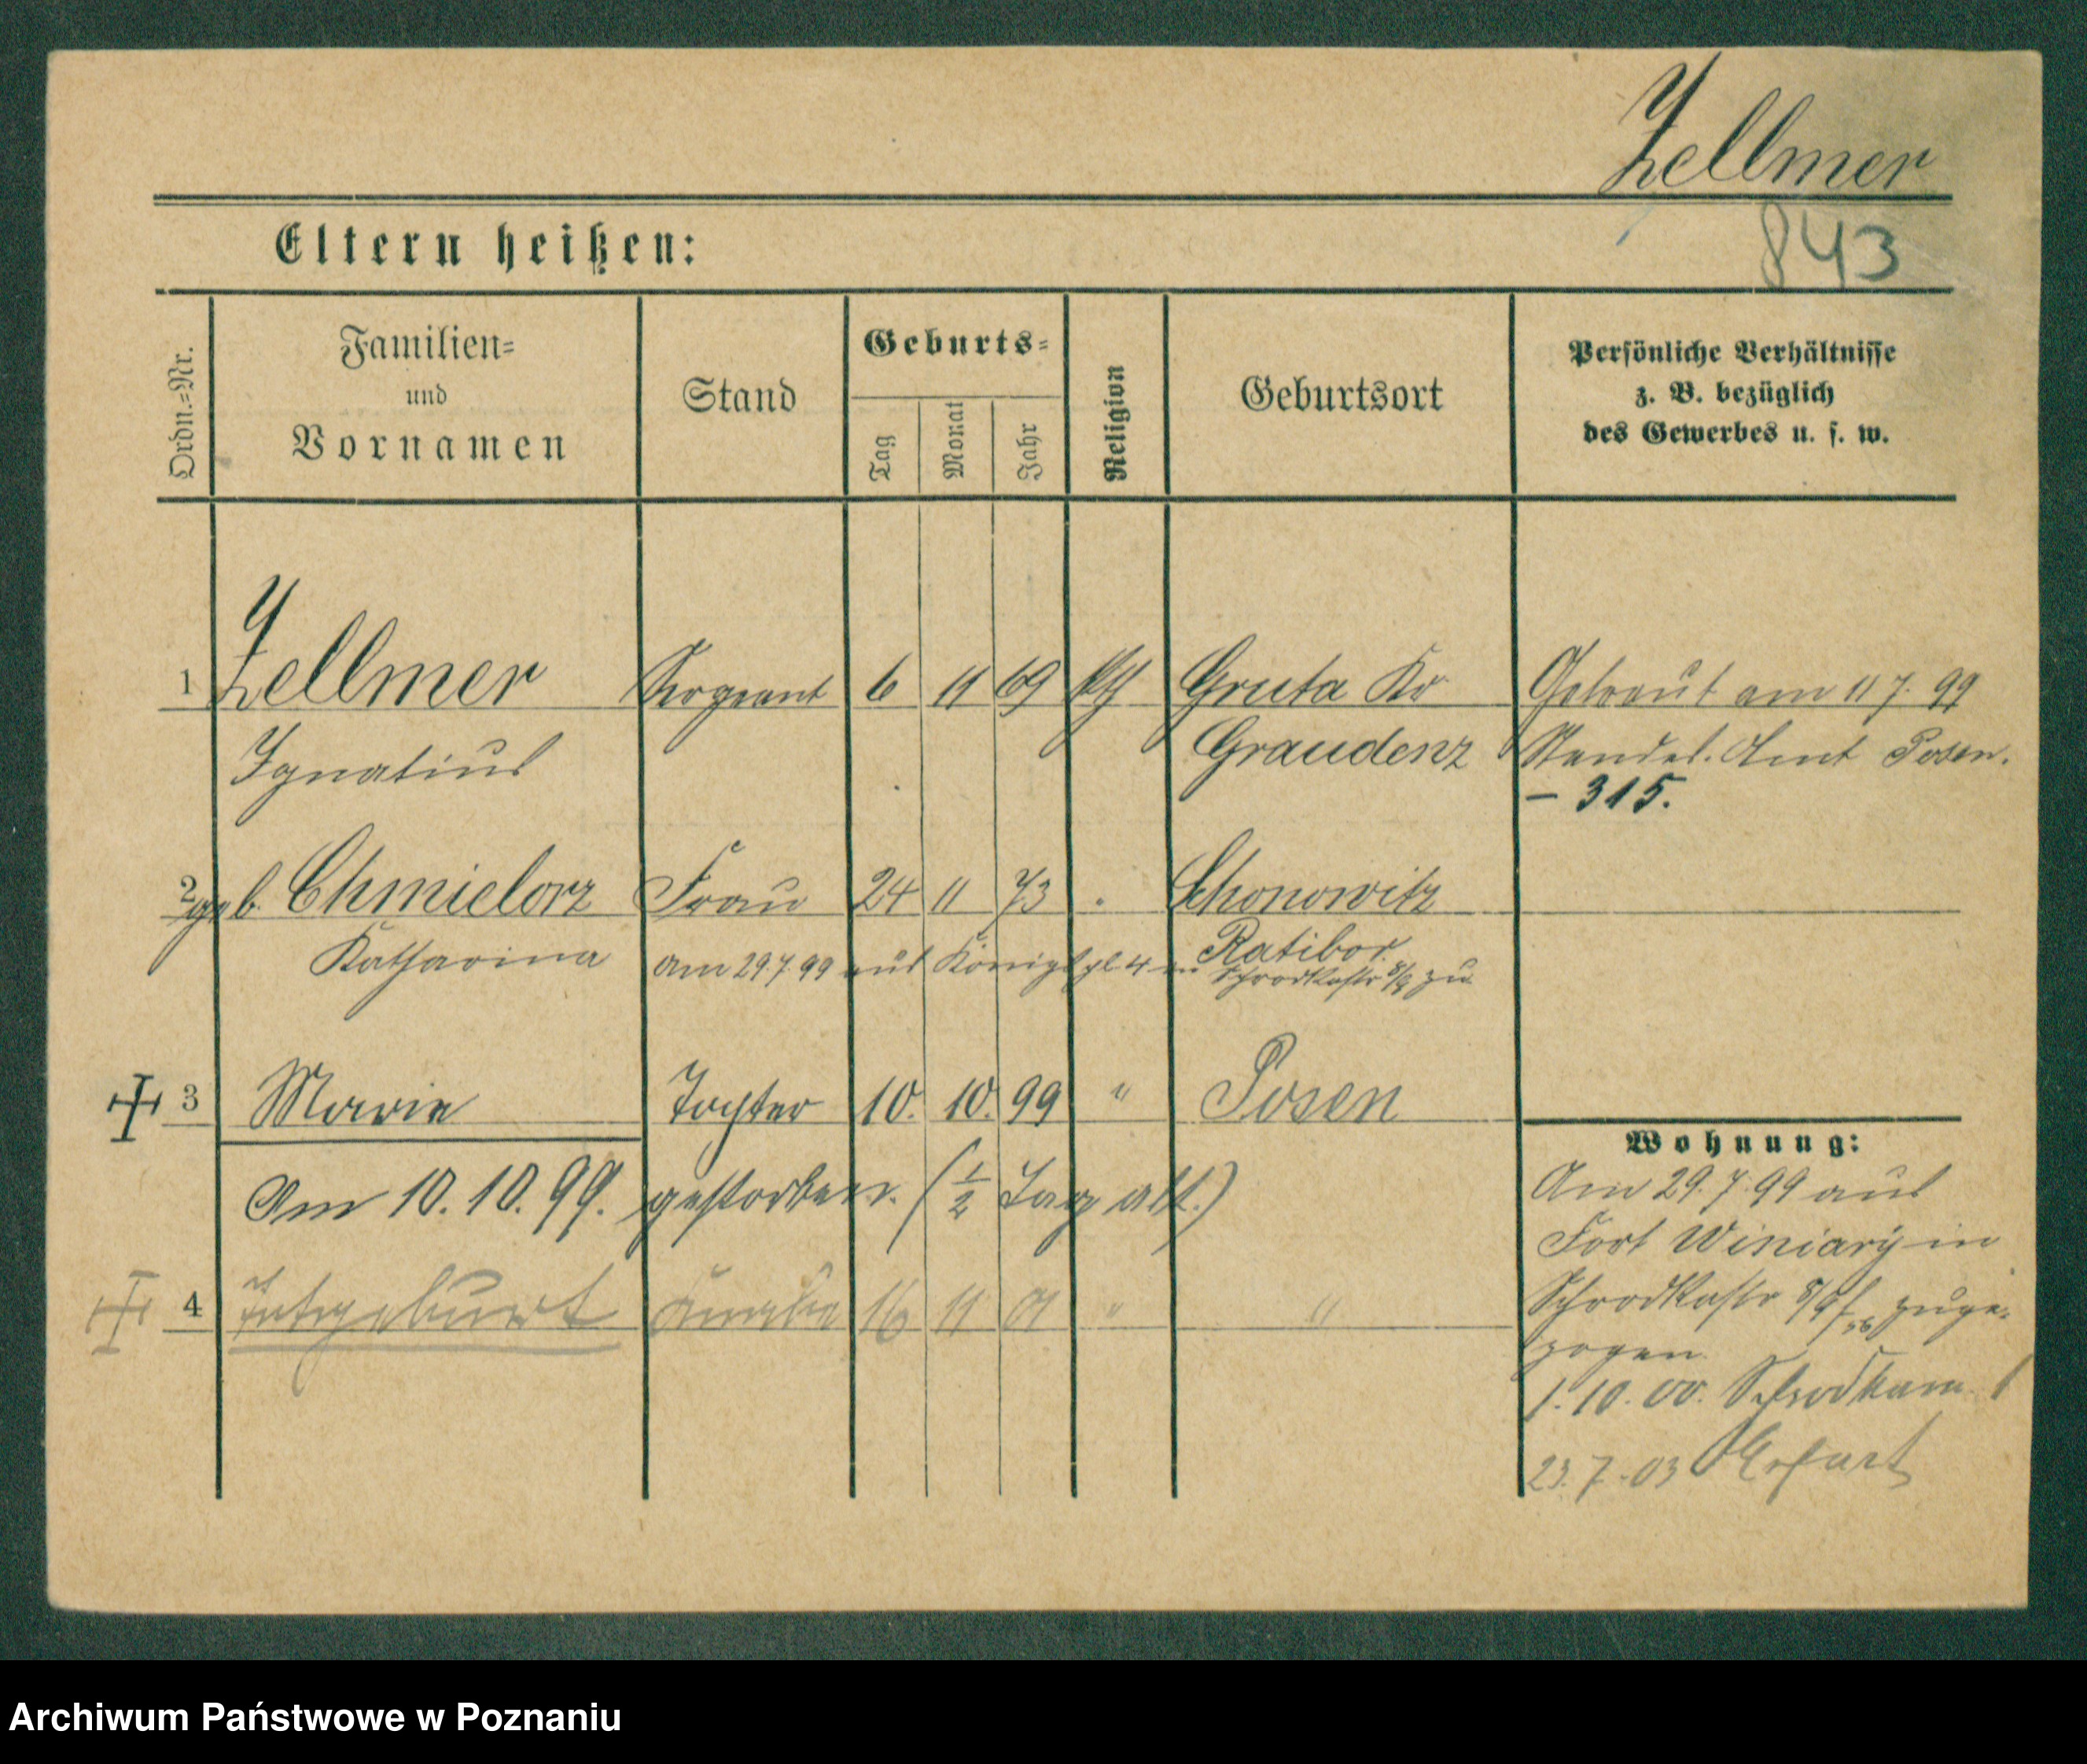 Zellmer
843
Eltern heißen:
Ordn.=Nr.
Familien=
und
Vornamen
Stand
Geburts=
Tag
Monat
Jahr
Religion
Geburtsort
Persönliche Verhältnisse
z. B. bezüglich
des Gewerbes u. s. w.
1 Zellmer Sergeant 6 11 69 kth Gruta Kr Getraut am 11 7. 99
Ignatius Graudenz Standes. Amt Posen.
– 315.
2 geb. Chmielorz Frau 24 11 73 " Schonowitz
Katharina Ratibor.
am 29.7.99 aus Königspl. 4 in Schrodkastr 8/9 zu
3 Marie Tochter 10. 10. 99 " Posen
Wohnung:
Am 10.10.99. gestorben. (1/2 Tag alt.)
Am 29.7.99 aus
Fort Winiary in
4 Totgeburt Knabe 16 11 01 " "
Schrodkastr 8/9 zuge-
zogen
1.10.00. Schrodkam 1
23.7.03 Erfurt
Archiwum Państwowe w Poznaniu